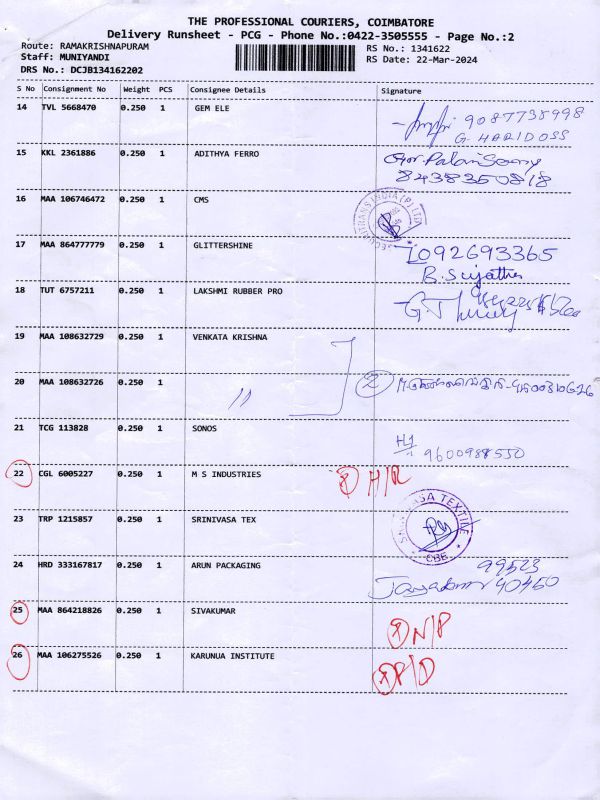 THE PROFESSIONAL COURIERS, COIMBATORE
Delivery Runsheet - PCG - Phone No.:0422-3505555 - Page No.:2
Route: RAMAKRISHNAPURAM RS No.: 1341622
Staff: MUNIYANDI RS Date: 22-Mar-2024
DRS No.: DCJB134162202
S No Consignment No Weight PCS Consignee Details Signature
14 TVL 5668470 0.250 1 GEM ELE 9087738998
G. HARIDOSS
15 KKL 2361886 0.250 1 ADITHYA FERRO
8438350818
16 MAA 106746472 0.250 1 CMS
17 MAA 864777779 0.250 1 GLITTERSHINE 7092693365
B. Sujatha
18 TUT 6757211 0.250 1 LAKSHMI RUBBER PRO
19 MAA 108632729 0.250 1 VENKATA KRISHNA
20 MAA 108632726 0.250 1 " 2
21 TCG 113828 0.250 1 SONOS
9600988550
22 CGL 6005227 0.250 1 M S INDUSTRIES H/R
23 TRP 1215857 0.250 1 SRINIVASA TEX
SRINIVASA TEXTILE CBE
24 HRD 333167817 0.250 1 ARUN PACKAGING 99523
40450
25 MAA 864218826 0.250 1 SIVAKUMAR N/P
26 MAA 106275526 0.250 1 KARUNUA INSTITUTE P/D